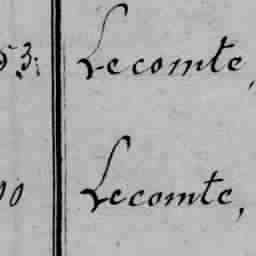 53: Lecomte,
00 Lecomte,